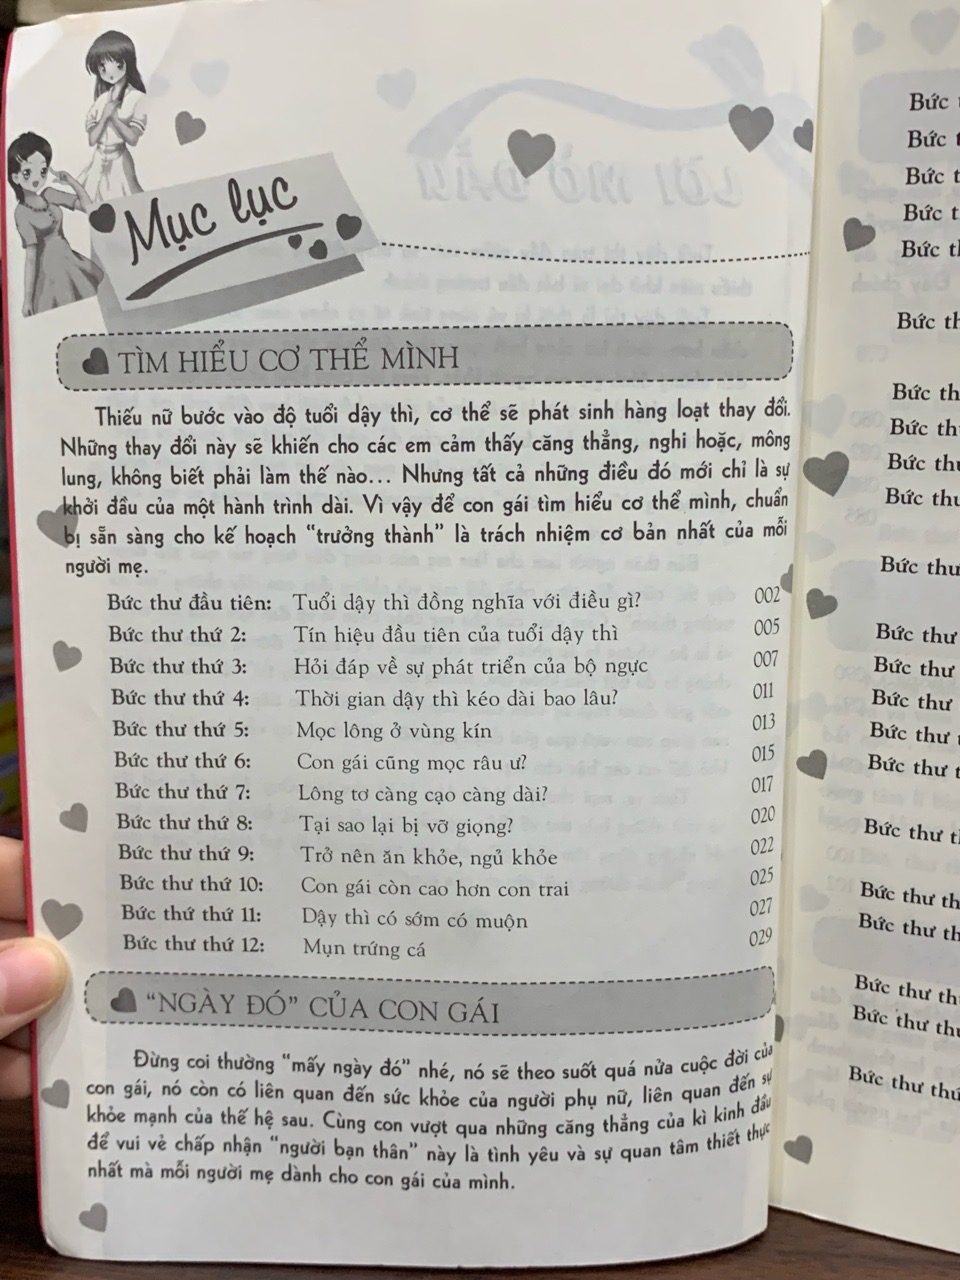 Mục lục
TÌM HIỂU CƠ THỂ MÌNH
Thiếu nữ bước vào độ tuổi dậy thì, cơ thể sẽ phát sinh hàng loạt thay đổi.
Những thay đổi này sẽ khiến cho các em cảm thấy căng thẳng, nghi hoặc, mông
lung, không biết phải làm thế nào... Nhưng tất cả những điều đó mới chỉ là sự
khởi đầu của một hành trình dài. Vì vậy để con gái tìm hiểu cơ thể mình, chuẩn
bị sẵn sàng cho kế hoạch "trưởng thành" là trách nhiệm cơ bản nhất của mỗi
người mẹ.
Bức thư đầu tiên: Tuổi dậy thì đồng nghĩa với điều gì? 002
Bức thư thứ 2: Tín hiệu đầu tiên của tuổi dậy thì 005
Bức thư thứ 3: Hỏi đáp về sự phát triển của bộ ngực 007
Bức thư thứ 4: Thời gian dậy thì kéo dài bao lâu? 011
Bức thư thứ 5: Mọc lông ở vùng kín 013
Bức thư thứ 6: Con gái cũng mọc râu ư? 015
Bức thư thứ 7: Lông tơ càng cạo càng dài? 017
Bức thư thứ 8: Tại sao lại bị vỡ giọng? 020
Bức thư thứ 9: Trở nên ăn khỏe, ngủ khỏe 022
Bức thư thứ 10: Con gái còn cao hơn con trai 025
Bức thứ thứ 11: Dậy thì có sớm có muộn 027
Bức thư thứ 12: Mụn trứng cá 029
"NGÀY ĐÓ" CỦA CON GÁI
Đừng coi thường "mấy ngày đó" nhé, nó sẽ theo suốt quá nửa cuộc đời của
con gái, nó còn có liên quan đến sức khỏe của người phụ nữ, liên quan đến sự
khỏe mạnh của thế hệ sau. Cùng con vượt qua những căng thẳng của kì kinh đầu
để vui vẻ chấp nhận "người bạn thân" này là tình yêu và sự quan tâm thiết thực
nhất mà mỗi người mẹ dành cho con gái của mình.
Bức
Bức
Bức
Bức
Bức
Bức
Bức
Bức
Bức
Bức thư
Bức thư
Bức thư
Bức thư
Bức thư
Bức thư
Bức thư
Bức thư
Bức thư
Bức thư
Bức thư
Bức thư
Bức thư